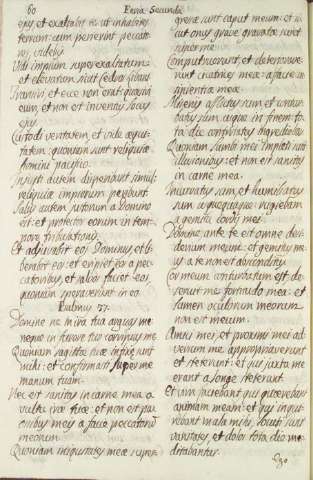 60
Feria Secunda
ejus et exaltabit te ut inhabites
terram: cum perierint peccato
res, videbis
Vidi impium superexaltatum:
et elevatum sicut cedros libani
Transivi et ecce non erat: quæsivi
eum, et non est inventus locus
ejus
Custodi veritatem, et vide æqui-
tatem: quoniam sunt reliquiæ
homini pacifico.
Injusti autem disperibunt simul:
reliquiæ impiorum peribunt.
Salus autem justorum a Domino
est: et protector eorum in tem-
pore tribulationis.
Et adjuvabit eos Dominus et li-
berabit eos: et eruet eos a pec-
catoribus, et salvabit eos,
quoniam speraverunt in eo
Psalmus 37.
Domine ne in ira tua arguas me
neque in furore tuo corripias me
Quoniam sagittæ tuæ infixæ sunt
mihi: et confirmasti super me
manum tuam.
Nec est sanitas in carne mea a
vultu iræ tuæ: et non est pax
ossibus meis a facie peccatorum
meorum.
Quoniam iniquitates meæ super-
gressæ sunt caput meum: et si
cut onus grave gravatæ sunt
super me
Computruerunt, et deteriora-
verunt cicatrices meæ: a facie in
sipientiæ meæ.
Miser et afflictus sum, et curva-
tus sum usque in finem: to
ta die contristatus ingrediebar
Quoniam lumbi mei impleti sunt
illusionibus: et non est sanitas
in carne mea.
Incurvatus sum, et humiliatus
sum usquequaque: rugiebam
a gemitu cordis mei
Domine ante te est omne desi-
derium meum: et gemitus me
us a te non est absconditus
Cor meum conturbatum est de
reliquit me fortitudo mea: et
lumen oculorum meorum
non est mecum.
Amici mei, et proximi mei ad-
versum me appropinquaverunt
et steterunt: et qui juxta me
erant a longe steterunt.
Et vim faciebant qui quærebant
animam meam: et qui inqui-
rebant mala mihi, locuti sunt
vanitates, et dolos tota die me-
ditabantur.
Ego